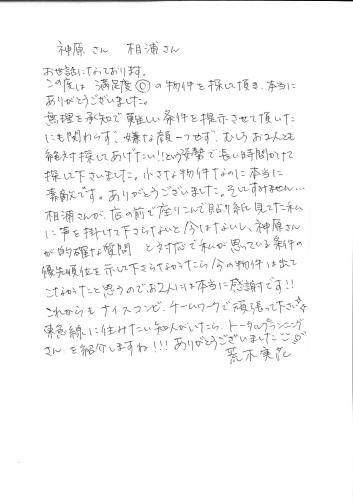 神原さん 相浦さん
お世話になっております。
この度は満足度◎の物件を探して頂き、本当に
ありがとうございました。
無理を承知で難しい条件を提示させて頂いた
にも関わらず、嫌な顔一つせず、むしろお2人とも
絶対探してあげたい!!という姿勢で長い時間かけて
探して下さいました。小さな物件なのに本当に
素敵です。ありがとうございました。そしてすみません…
相浦さんが、店の前で座りこんで貼り紙見てた私
に声を掛けて下さらないと今はないし、神原さん
が的確な質問と対応で私が思っている条件の
優先順位を示して下さらなかったら今の物件は出て
こなかったと思うのでお2人には本当に感謝です!!
これからもナイスコンビ、チームワークで頑張って下さい
東急線に住みたい知人がいたら、トータルプランニング
さんを紹介しますね!!!ありがとうございました
荒木実花